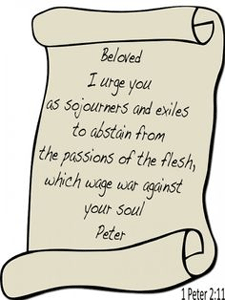 Beloved
I urge you
as sojourners and exiles
to abstain from
the passions of the flesh,
which wage war against
your soul
Peter
1 Peter 2:11